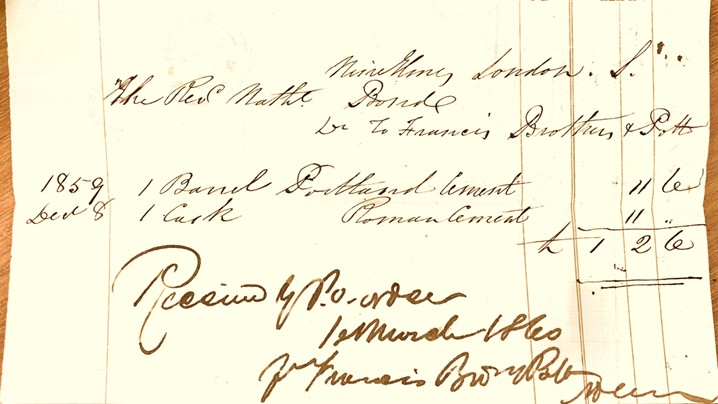 Nine Elms, London. S.
The Revd. Nathl. Bond
Dr To Francis Brothers & Pott
1859 1 Barrel Portland Cement 11 6
Decr 8 1 Cask Roman Cement 11 "
£ 1 2 6
Received by P.O. order
1st March 1860
pr Francis Bros & Pott